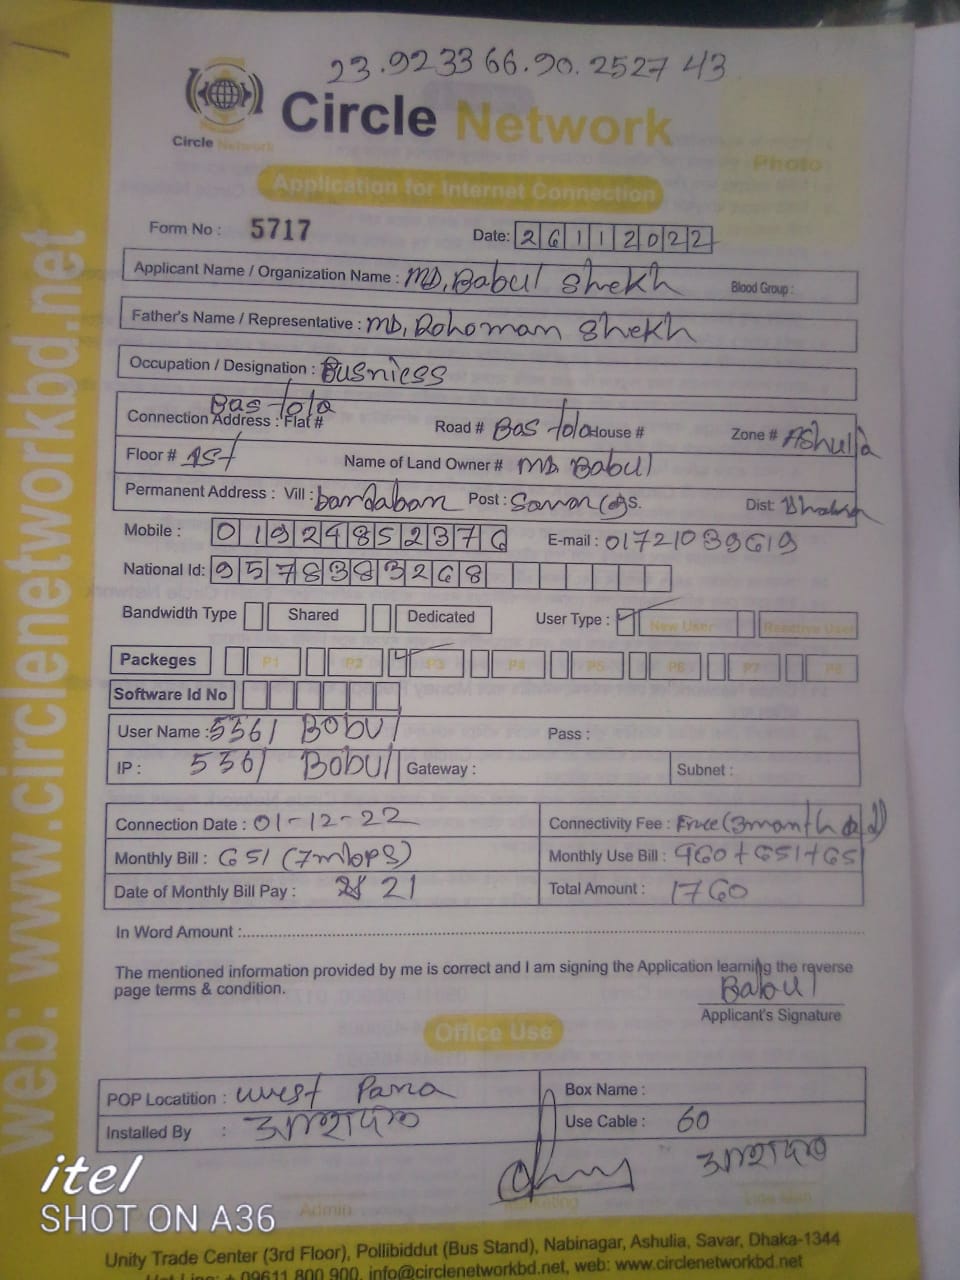 23.923366.90.252743
Circle Network
Circle Network
Photo
Application for Internet Connection
Form No : 5717
Date: 26112022
Applicant Name / Organization Name : MD, Babul Shekh Blood Group :
Father's Name / Representative : MD, Rohoman Shekh
Occupation / Designation : Busniess
Bas tola
Connection Address : Flat # Road # Bas tola House # Zone # AShulia
Floor # 1st Name of Land Owner # MD. Babul
Permanent Address : Vill : bandaban Post : Dist:
Mobile : 01924852376 E-mail : 01721039619
National Id: 9578383268
Bandwidth Type Shared Dedicated User Type : New User Reactive User
Packeges P1 P2 P3 P4 P5 P6 P7 P8
Software Id No
User Name : 5361 Bobul Pass :
IP : 5361 Bobul Gateway : Subnet :
Connection Date : 01-12-22 Connectivity Fee : Free (3month
Monthly Bill : 651 (7mbps) Monthly Use Bill : 460+651+651
Date of Monthly Bill Pay : 21 Total Amount : 1760
In Word Amount :
The mentioned information provided by me is correct and I am signing the Application learning the reverse
page terms & condition.
Babul
Applicant's Signature
Office Use
POP Locatition : west Para Box Name :
Installed By : Use Cable : 60
Admin Marketing
Unity Trade Center (3rd Floor), Pollibiddut (Bus Stand), Nabinagar, Ashulia, Savar, Dhaka-1344
Hot Line: + 09611 800 900, info@circlenetworkbd.net, web: www.circlenetworkbd.net
web: www.circlenetworkbd.net
itel
SHOT ON A36